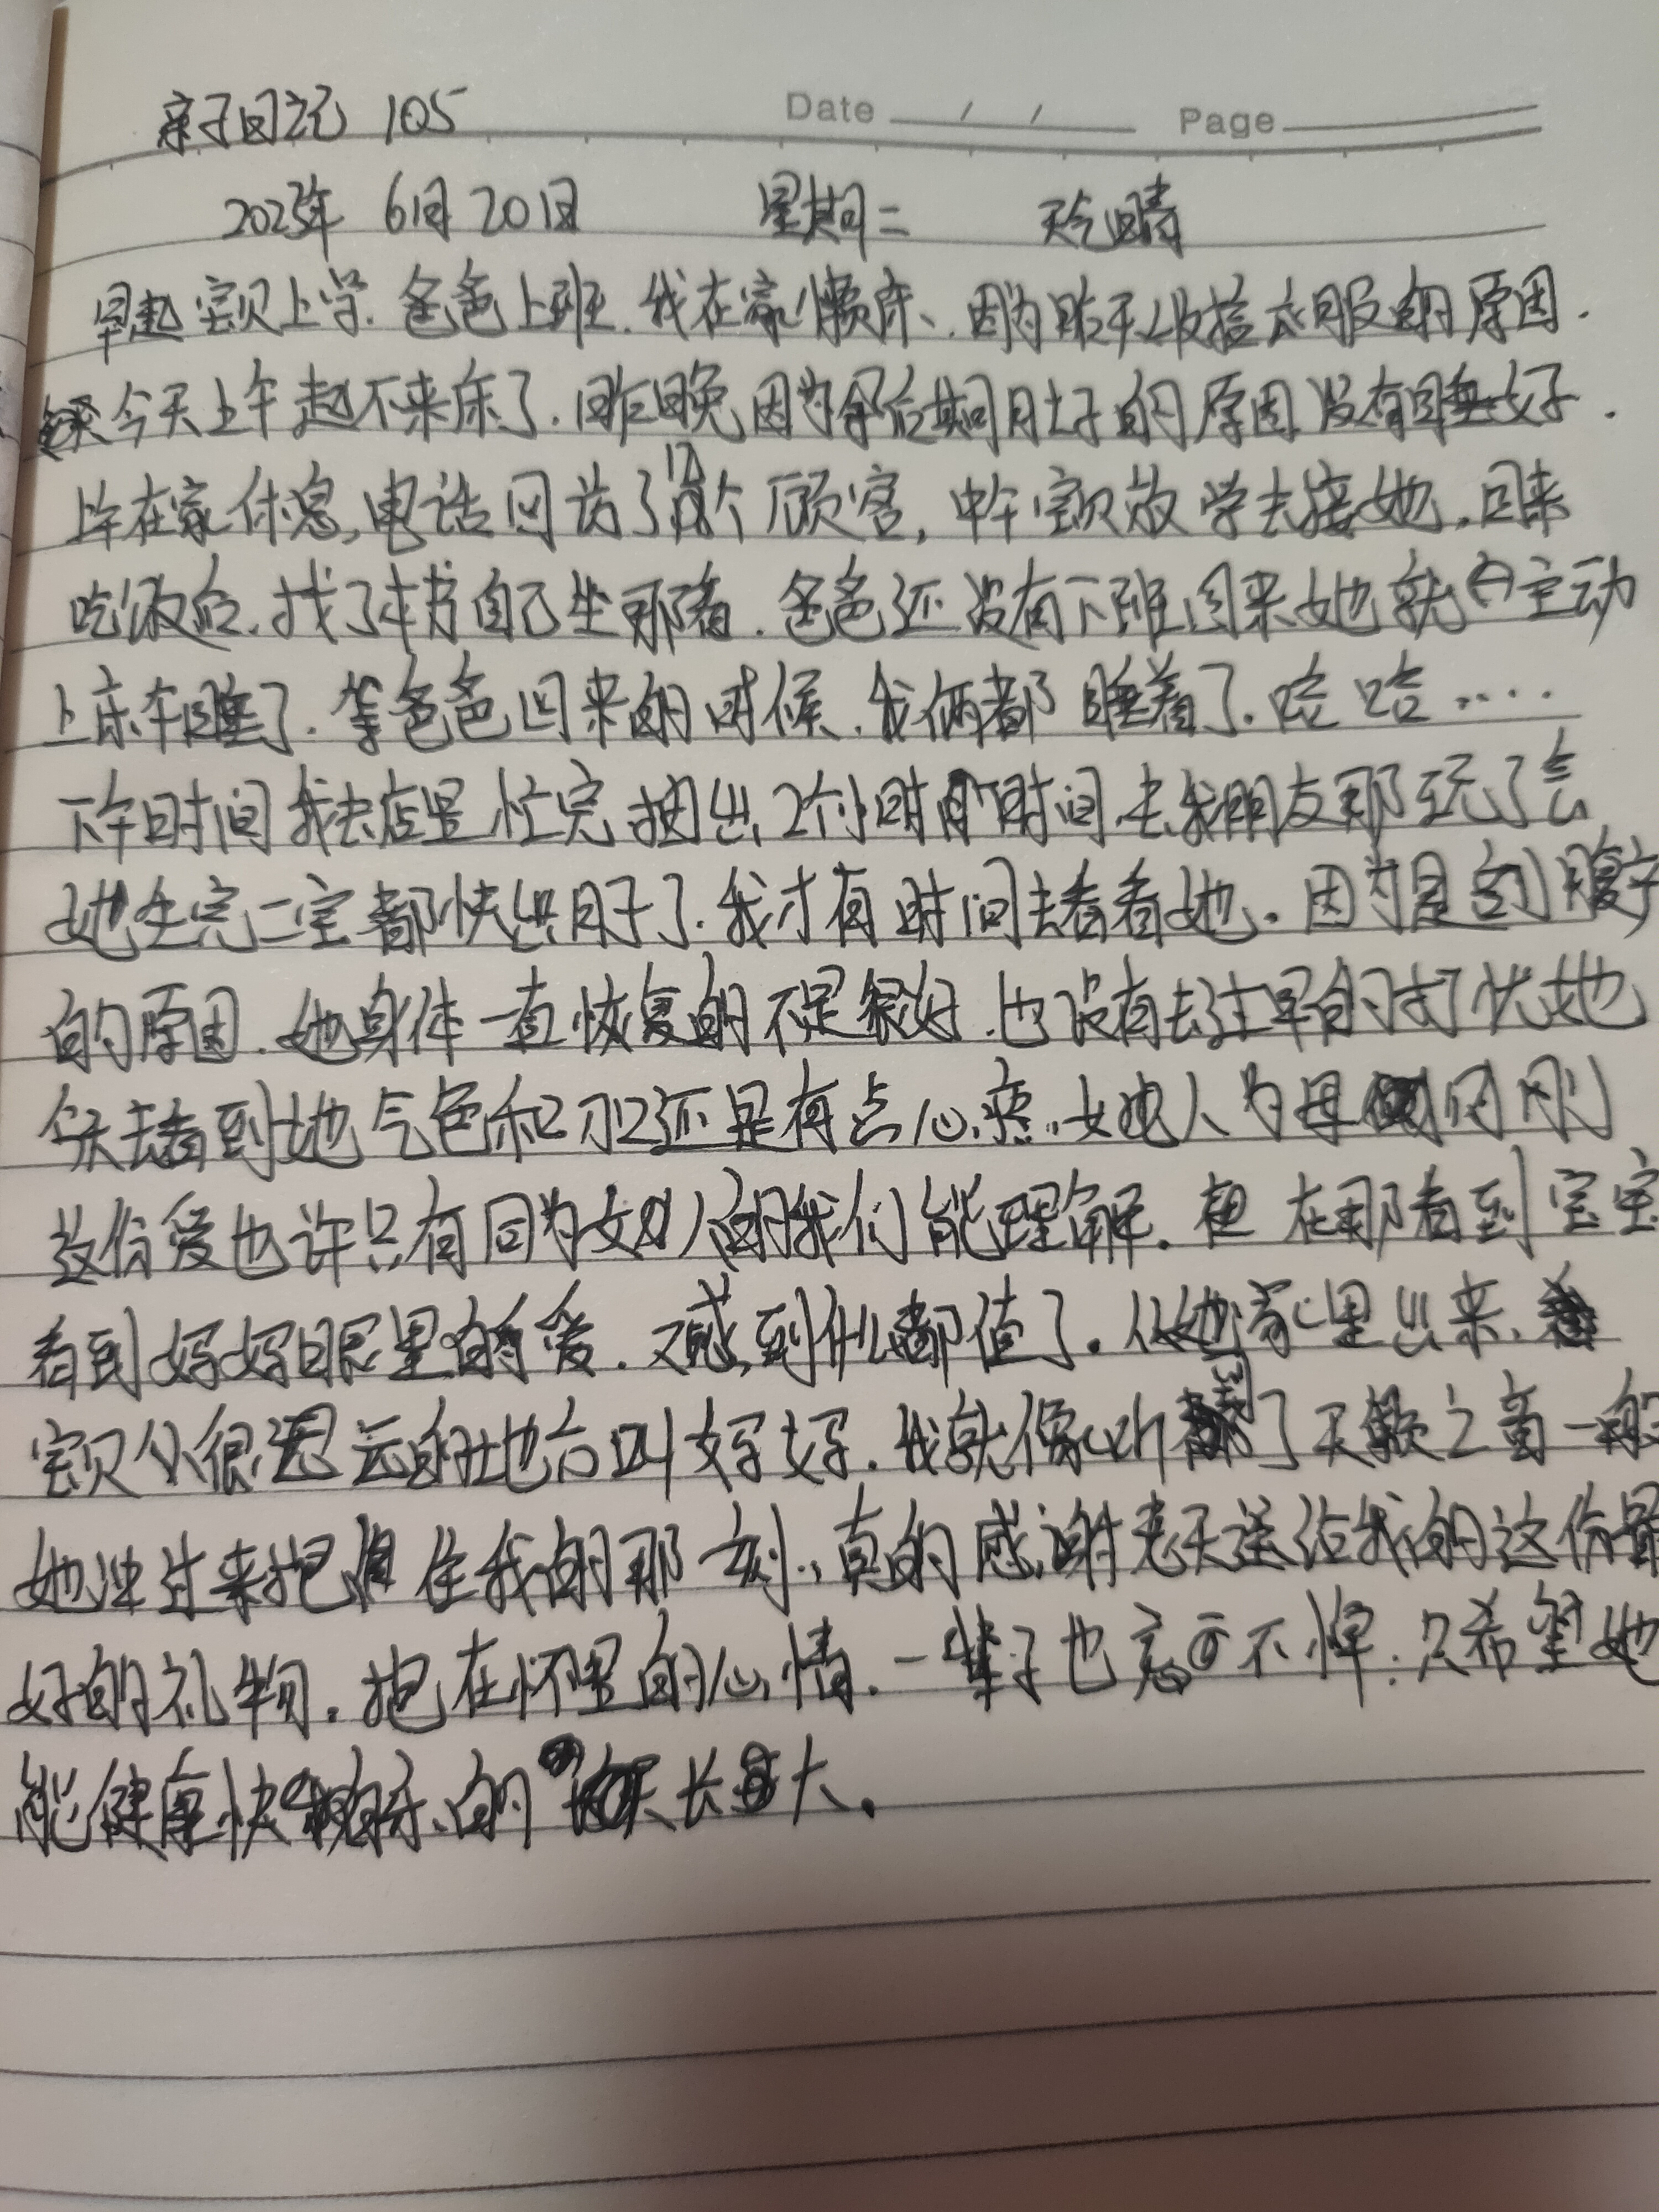 亲子日记 105
Date / / Page
2023年 6月20日 星期二 天气晴
早起宝贝上学.爸爸上班.我在家懒床、因为昨天收拾衣服的原因.
今天上午起不来床了.昨晚因为例假期肚子的原因没有睡好.
上午在家休息,电话回访了12个顾客,中午宝贝放学去接她.回来
吃饭后.找了本书自己坐那看.爸爸还没有下班回来她就主动
上床午睡了.等爸爸回来的时候.我俩都睡着了.哈哈.....
下午时间我去店里忙完抽出2个小时时间去我朋友那玩了会
她生完二宝都快出月子了.我才有时间去看看她.因为是剖腹产
的原因.她身体一直恢复的不是很好.也没有去过早的打扰她
今天去看到她气色和 还是有点心疼.女人为母 刚
这份爱也许只有同为女人的我们能理解.但在那看到宝宝
看到妈妈眼里的爱.又感到什么都值了.从她家里出来.
宝贝从很远的地方叫妈妈.我就像听到了天籁之音一般
她冲过来抱住我的那一刻.,真的感谢老天送给我的这份最
好的礼物.抱在怀里的心情.一辈子也忘不掉.只希望她
能健康快乐的 长大.